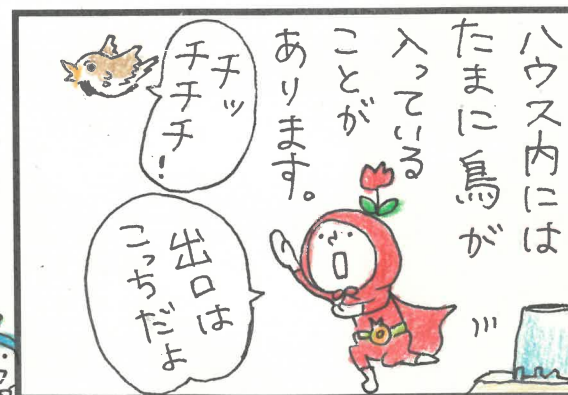 ハウス内には
たまに鳥が
入っている
ことが
あります。
チッ
チチチ!
出口は
こっちだよ